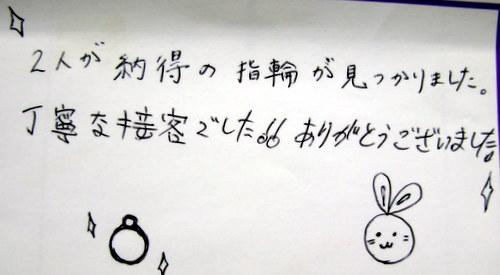 2人が納得の指輪が見つかりました。
丁寧な接客でした!! ありがとうございました!